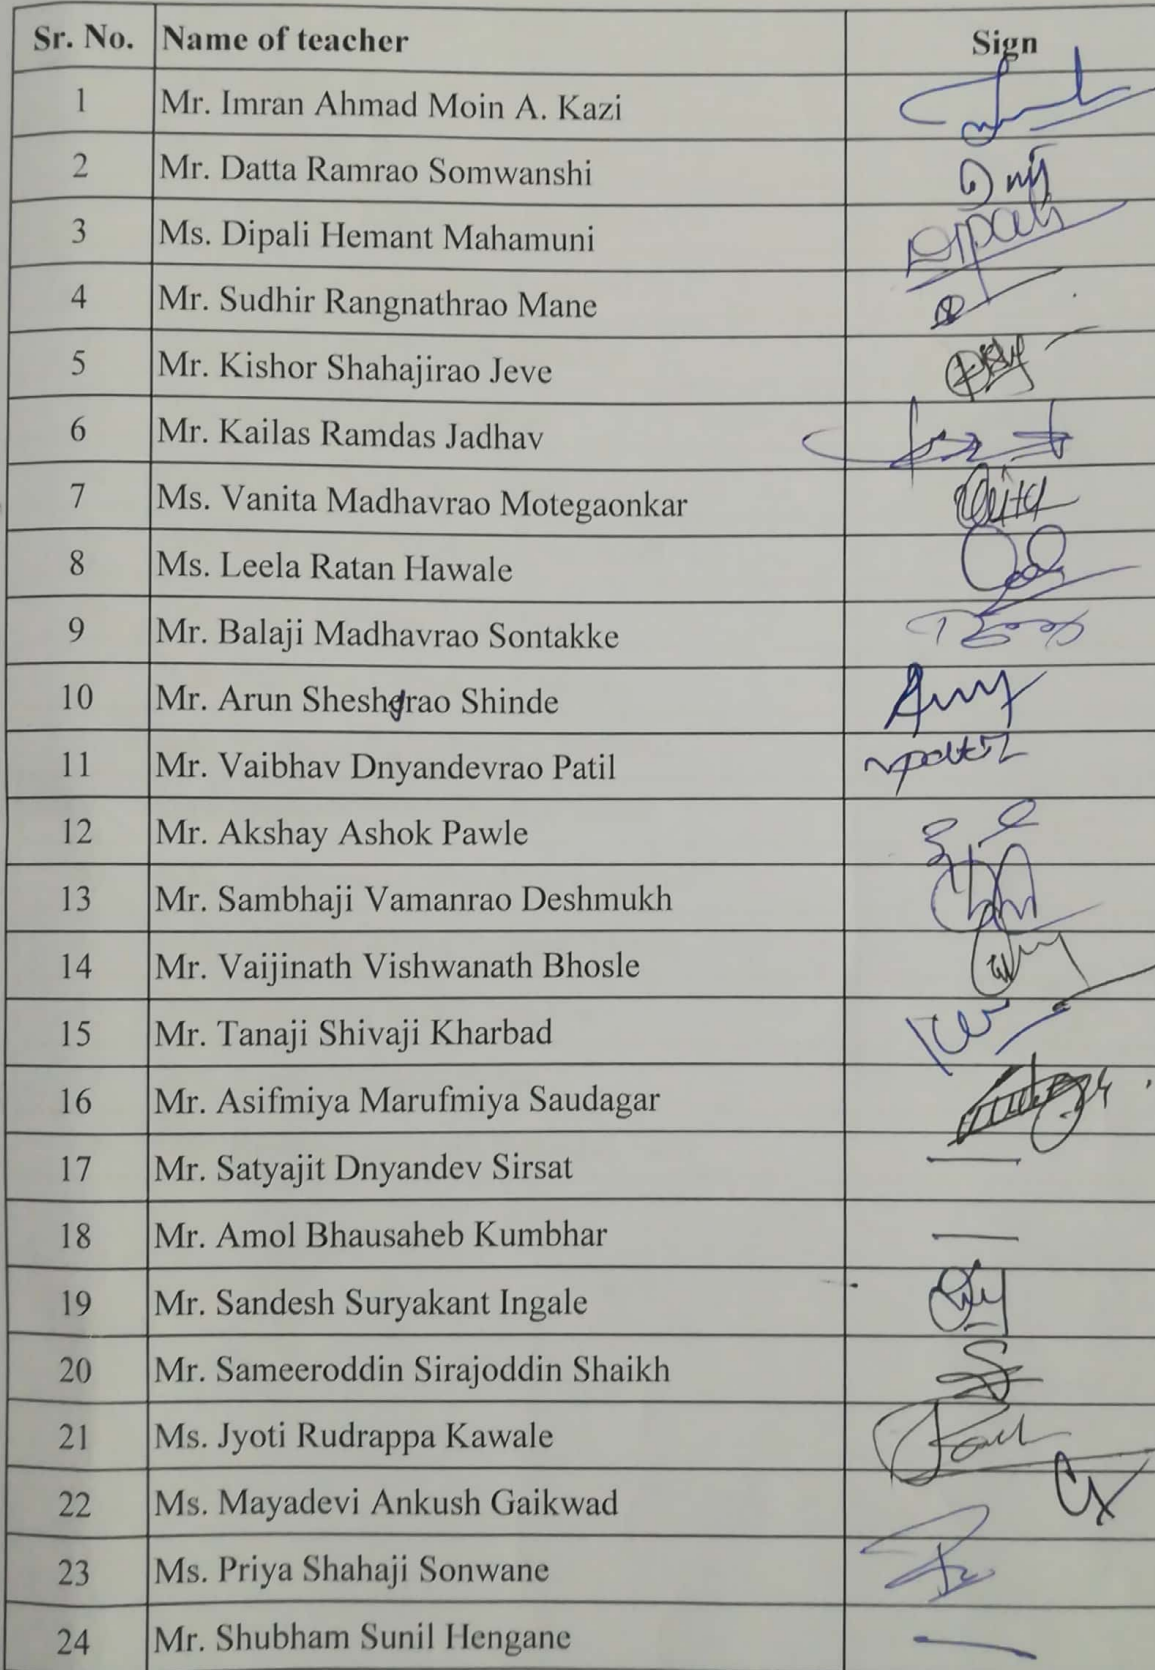 Sr. No. Name of teacher Sign
1 Mr. Imran Ahmad Moin A. Kazi
2 Mr. Datta Ramrao Somwanshi
3 Ms. Dipali Hemant Mahamuni Dipali
4 Mr. Sudhir Rangnathrao Mane
5 Mr. Kishor Shahajirao Jeve
6 Mr. Kailas Ramdas Jadhav
7 Ms. Vanita Madhavrao Motegaonkar
8 Ms. Leela Ratan Hawale
9 Mr. Balaji Madhavrao Sontakke
10 Mr. Arun Shesherao Shinde
11 Mr. Vaibhav Dnyandevrao Patil
12 Mr. Akshay Ashok Pawle
13 Mr. Sambhaji Vamanrao Deshmukh
14 Mr. Vaijinath Vishwanath Bhosle
15 Mr. Tanaji Shivaji Kharbad
16 Mr. Asifmiya Marufmiya Saudagar
17 Mr. Satyajit Dnyandev Sirsat —
18 Mr. Amol Bhausaheb Kumbhar —
19 Mr. Sandesh Suryakant Ingale
20 Mr. Sameeroddin Sirajoddin Shaikh
21 Ms. Jyoti Rudrappa Kawale
22 Ms. Mayadevi Ankush Gaikwad
23 Ms. Priya Shahaji Sonwane
24 Mr. Shubham Sunil Hengane —